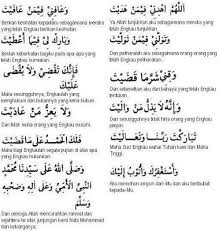 اَللّٰهُمَّ اهْدِنِيْ فِيْمَنْ هَدَيْتَ
Ya Allah tunjukkan aku sebagaimana mereka
yang telah Engkau tunjukkan
وَعَافِنِيْ فِيْمَنْ عَافَيْتَ
Berilah kesihatan kepadaku sebagaimana mereka
yang telah Engkau berikan kesihatan
وَتَوَلَّنِيْ فِيْمَنْ تَوَلَّيْتَ
Dan peliharalah aku sebagaimana orang
yang telah Engkau peliharakan
وَبَارِكْ لِيْ فِيْمَا أَعْطَيْتَ
Berilah keberkatan bagiku pada apa-apa yang
telah Engkau kurniakan
وَقِنِيْ شَرَّمَا قَضَيْتَ
Dan selamatkan aku dari bahaya yang telah Engkau
tentukan
فَإِنَّكَ تَقْضِيْ وَلَا يُقْضَى
عَلَيْكَ
Maka sesungguhnya, Engkaulah yang
menghukum dan bukannya yang kena hukum
وَإِنَّهُ لَا يَذِلُّ مَنْ وَالَيْتَ
Dan sesungguhnya tidak hina orang yang Engkau
pimpin
وَلَا يَعِزُّ مَنْ عَادَيْتَ
Dan tidak mulia orang yang Engkau musuhi
تَبَارَكْتَ رَبَّنَا وَتَعَالَيْتَ
Maha Suci Engkau wahai Tuhan kami dan Maha
Tinggi
فَلَكَ الْحَمْدُ عَلَى مَا قَضَيْتَ
Maha bagi Engkau segala pujian di atas apa yang
Engkau hukumkan
أَسْتَغْفِرُكَ وَأَتُوْبُ إِلَيْكَ
Aku memohon ampun dari-Mu dan aku bertaubat
kepada-Mu
وَصَلَّى اللهُ عَلَى سَيِّدِنَا مُحَمَّدٍ
النَّبِيِّ الْأُمِّيِّ وَعَلَى آلِهِ وَصَحْبِهِ
وَسَلَّمَ
Dan semoga Allah mencurahkan rahmat dan
sejahtera ke atas junjungan kami Nabi Muhammad
dan keluarganya